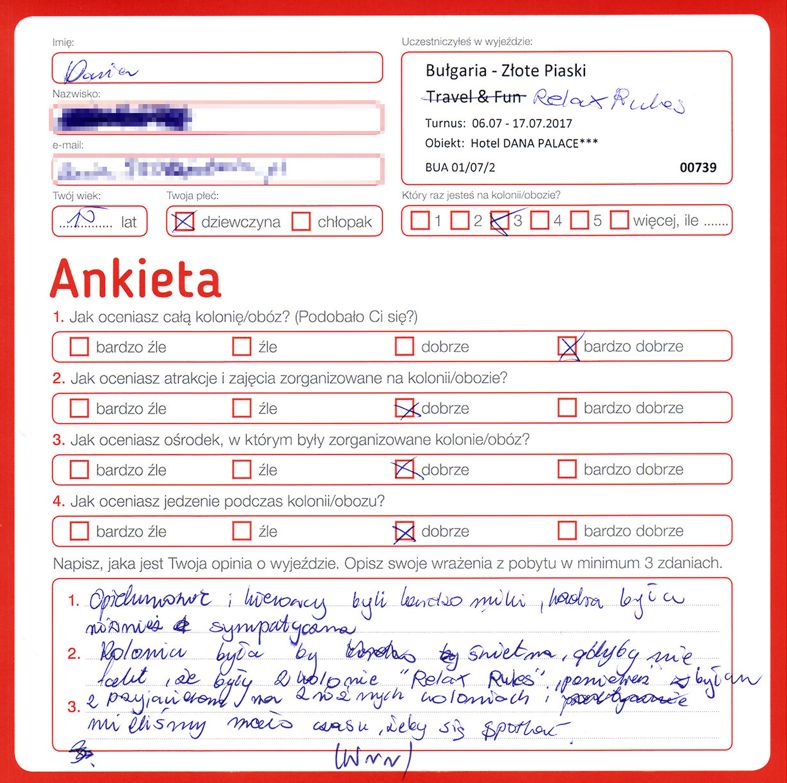 Imię:
Daria
Nazwisko:
e-mail:
Twój wiek:
15 lat
Twoja płeć:
dziewczyna chłopak
Uczestniczyłeś w wyjeździe:
Bułgaria - Złote Piaski
Travel & Fun Relax Rules
Turnus: 06.07 - 17.07.2017
Obiekt: Hotel DANA PALACE***
BUA 01/07/2 00739
Który raz jesteś na kolonii/obozie?
1 2 3 4 5 więcej, ile .......
Ankieta
1. Jak oceniasz całą kolonię/obóz? (Podobało Ci się?)
bardzo źle źle dobrze bardzo dobrze
2. Jak oceniasz atrakcje i zajęcia zorganizowane na kolonii/obozie?
bardzo źle źle dobrze bardzo dobrze
3. Jak oceniasz ośrodek, w którym były zorganizowane kolonie/obóz?
bardzo źle źle dobrze bardzo dobrze
4. Jak oceniasz jedzenie podczas kolonii/obozu?
bardzo źle źle dobrze bardzo dobrze
Napisz, jaka jest Twoja opinia o wyjeździe. Opisz swoje wrażenia z pobytu w minimum 3 zdaniach.
1. i kierowcy byli bardzo miłi, kadra była
również sympatyczna
2. Kolonia była by świetna, gdyby nie
fakt, że były 2 kolonie "Relax Rules", ponieważ byłam
3. z przyjaciółmi na 2 różnych koloniach i
mieliśmy mało czasu, żeby się spotkać.